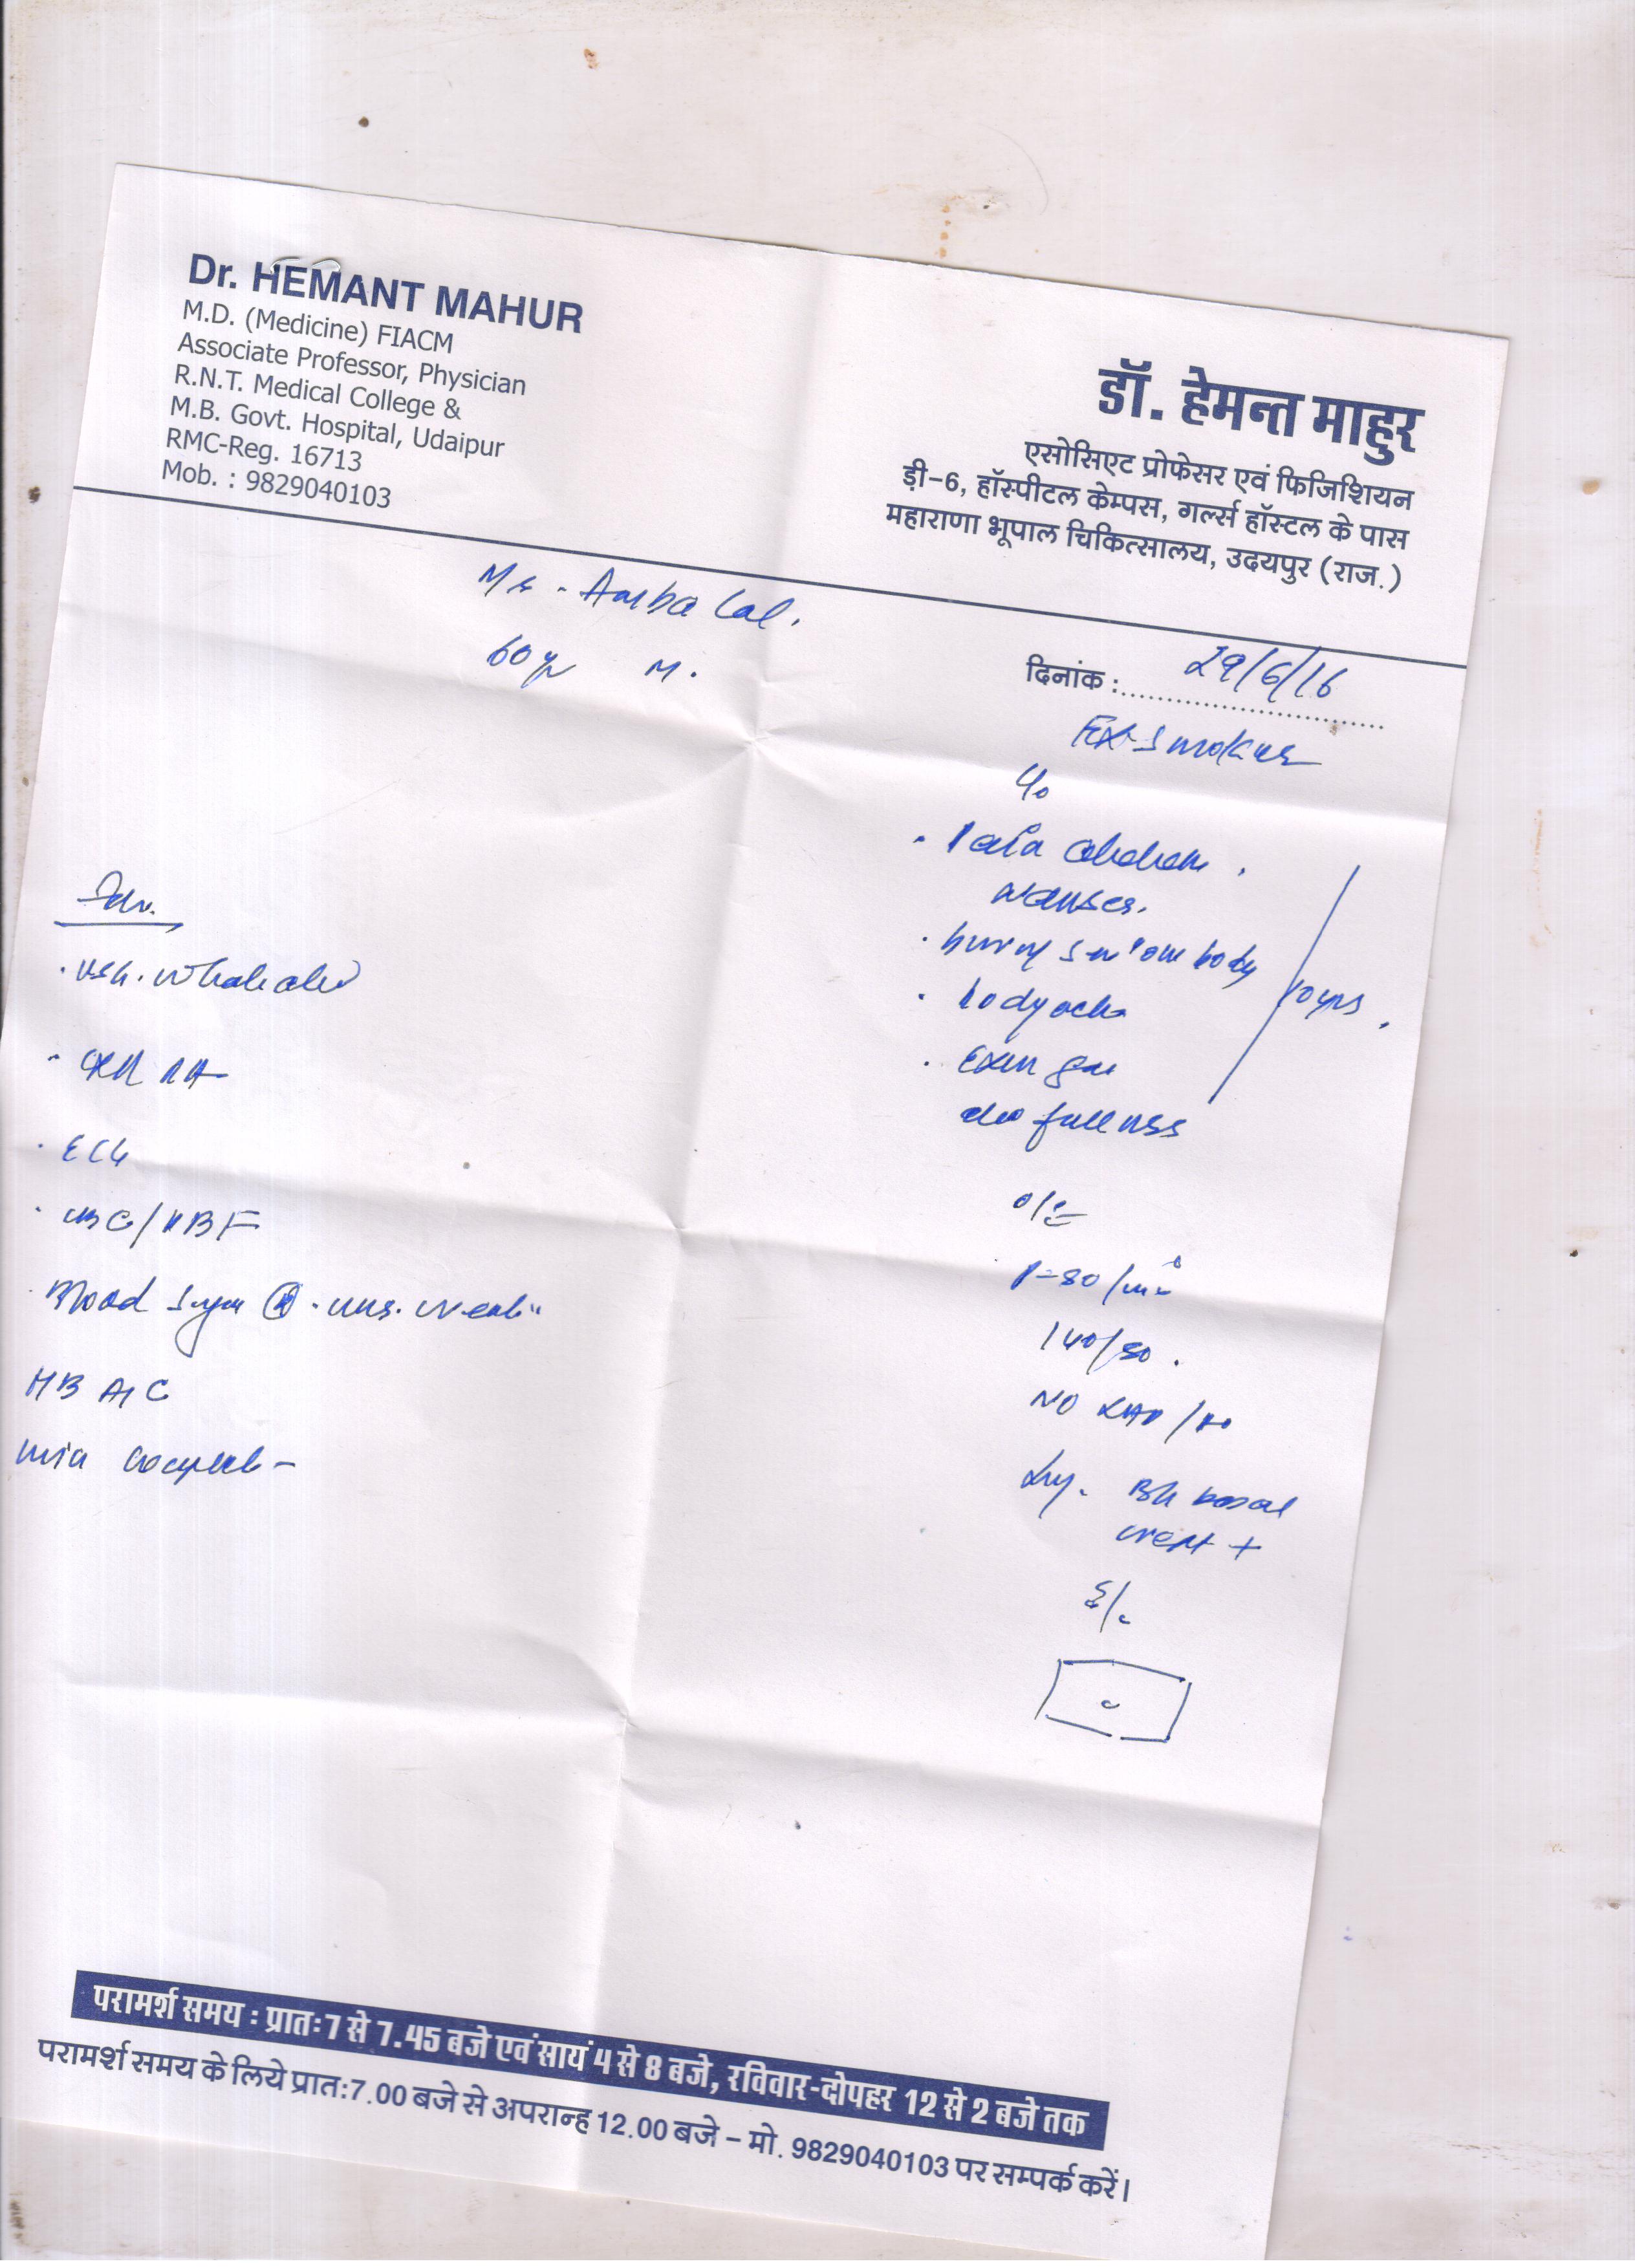 Dr. HEMANT MAHUR
M.D. (Medicine) FIACM
Associate Professor, Physician
R.N.T. Medical College &
M.B. Govt. Hospital, Udaipur
RMC-Reg. 16713
Mob. : 9829040103
डॉ. हेमन्त माहुर
एसोसिएट प्रोफेसर एवं फिजिशियन
ड़ी-6, हॉस्पीटल केम्पस, गर्ल्स हॉस्टल के पास
महाराणा भूपाल चिकित्सालय, उदयपुर (राज.)
Mr. Amba Lal.
60 yr M.
दिनांक : 29/6/16
Ex-Smoker
c/o
. Pain abdomen.
nausea.
. body ache
10 yrs.
fullness
O/E
P-80/min
140/80.
NO
Bil basal
crept +
S/
. USG. Whole abd
. CXR PA
. ECG
. CBC/PBF
Blood Sugar
HB A1C
Urine complete
परामर्श समय : प्रातः 7 से 7.45 बजे एवं सायं 4 से 8 बजे, रविवार-दोपहर 12 से 2 बजे तक
परामर्श समय के लिये प्रातः7.00 बजे से अपरान्ह 12.00 बजे – मो. 9829040103 पर सम्पर्क करें।